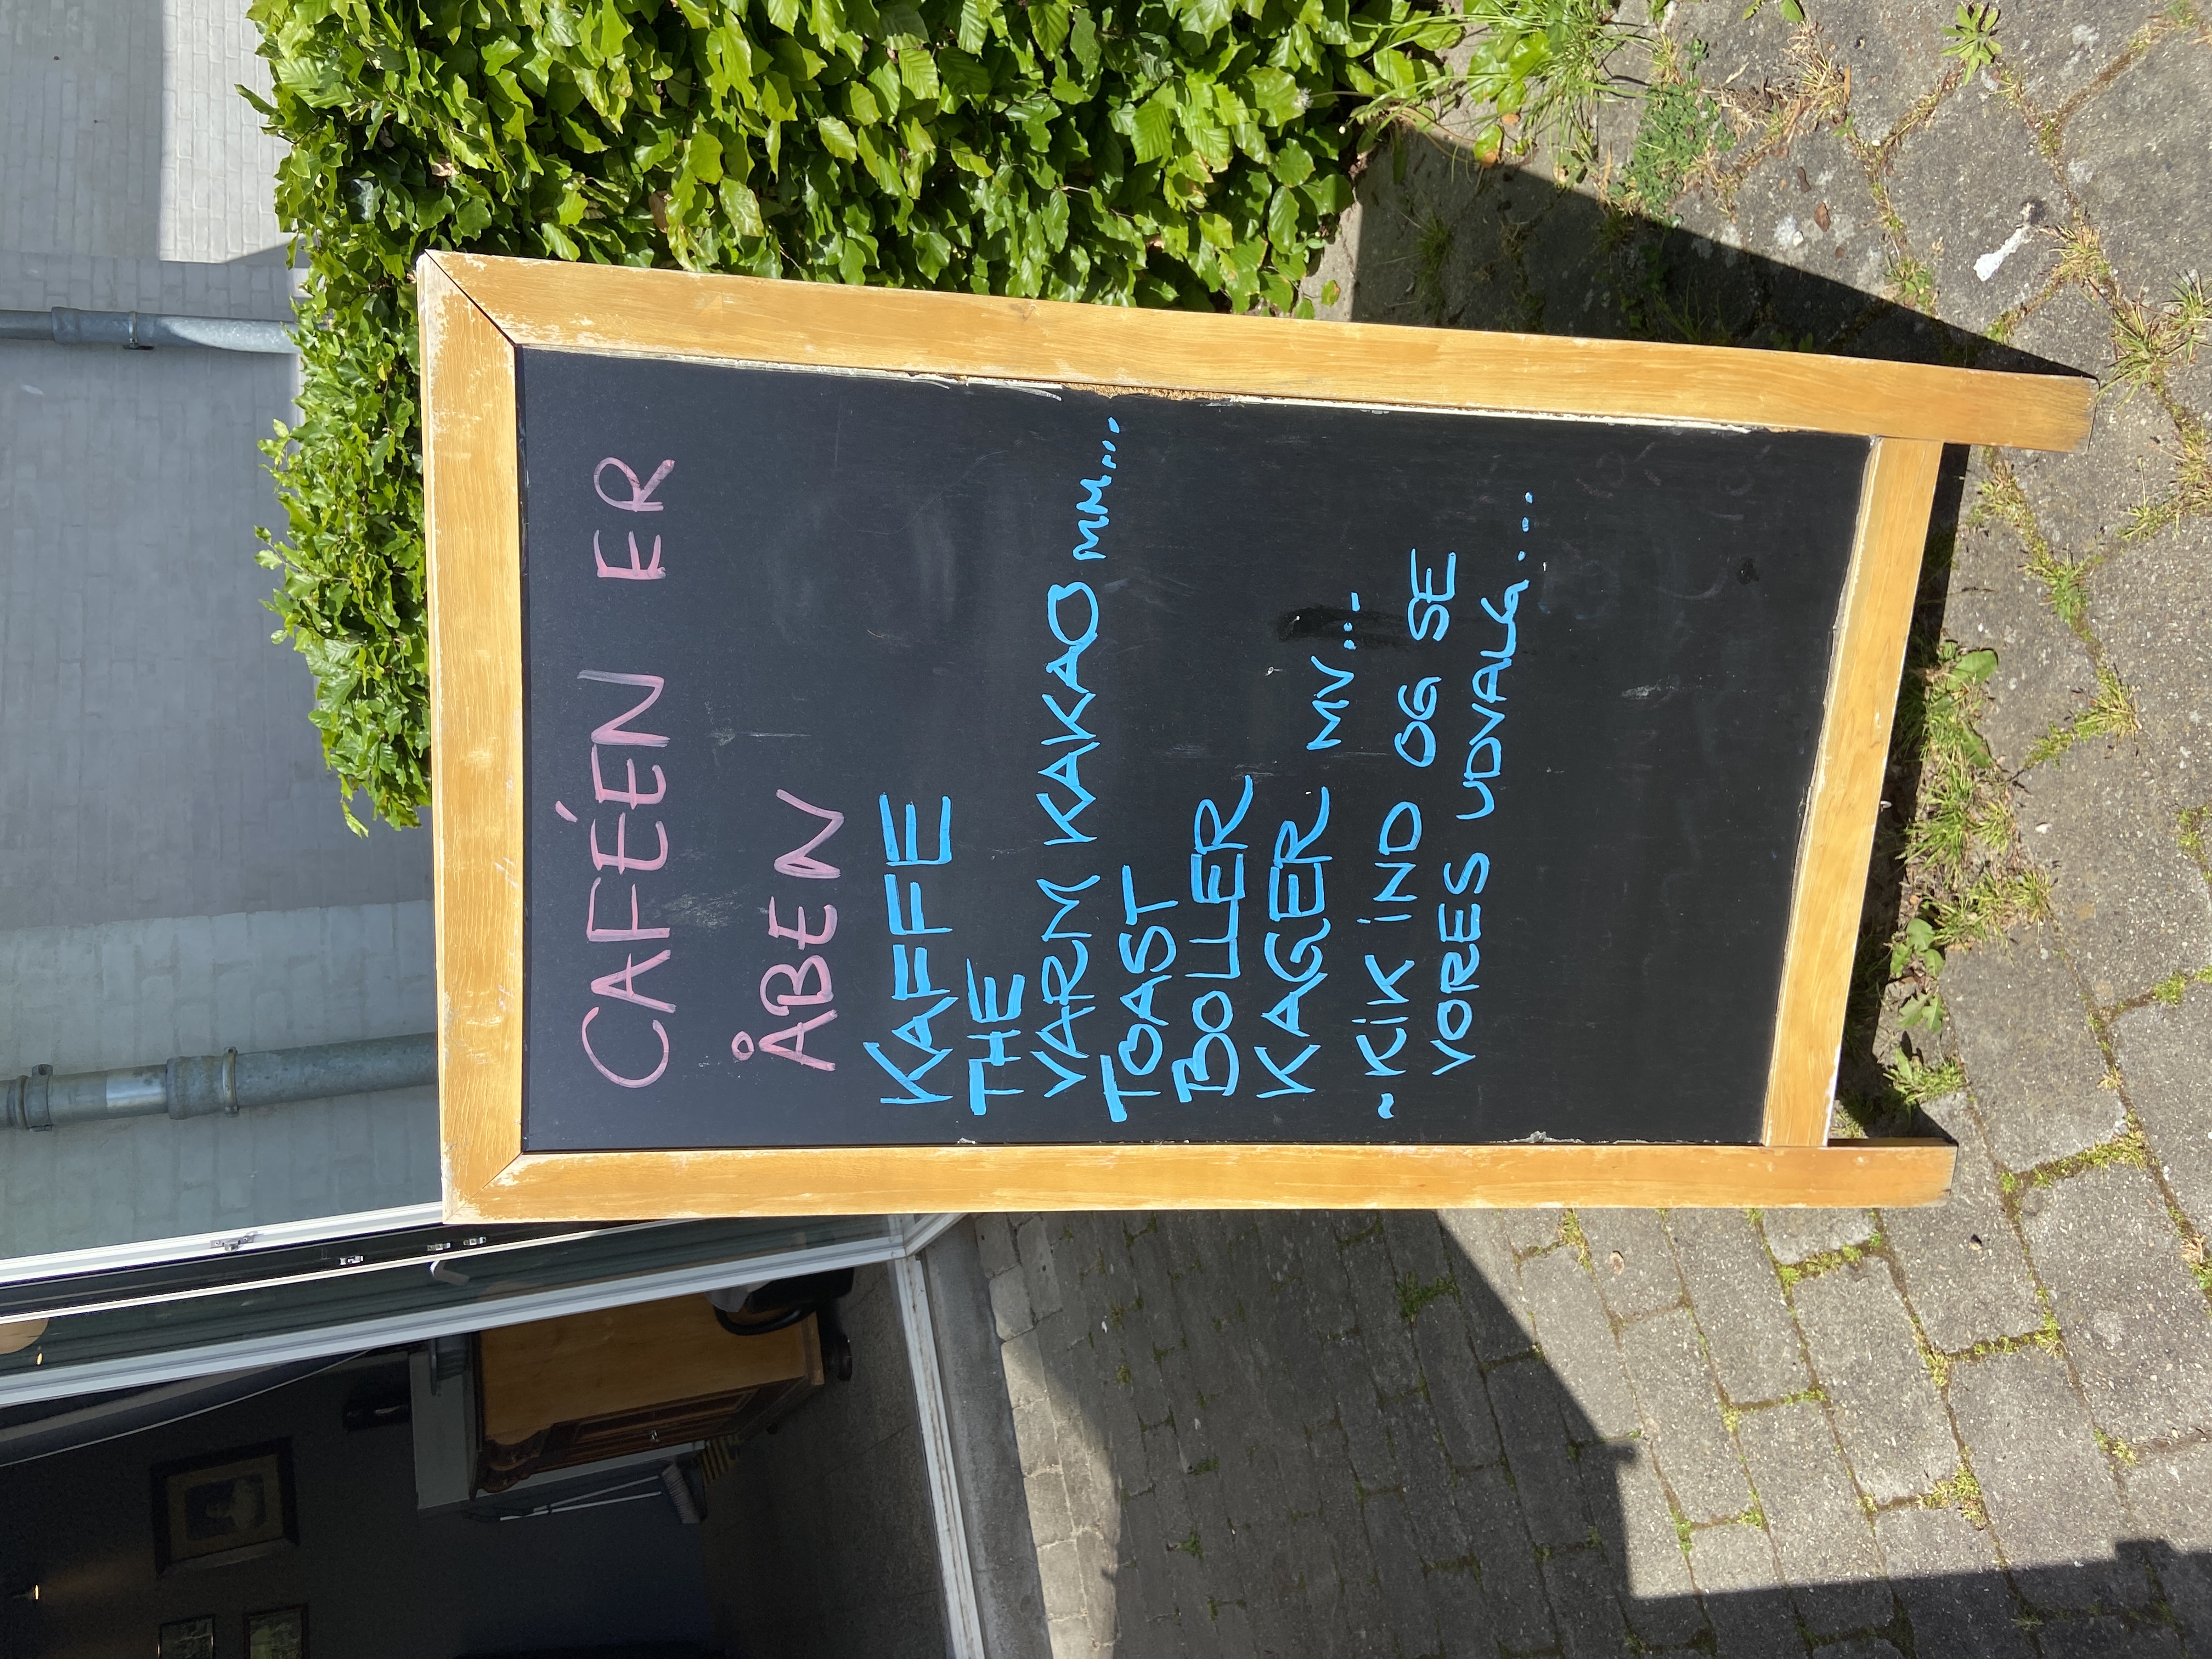 CAFÉEN ER
ÅBEN
KAFFE
THE
VARM KAKAO MM...
TOAST
BOLLER
KAGER MV...
~KIK IND OG SE
VORES UDVALG...